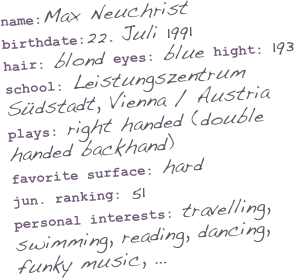 name: Max Neuchrist
birthdate: 22. Juli 1991
hair: blond eyes: blue hight: 193
school: Leistungszentrum
Südstadt, Vienna / Austria
plays: right handed (double
handed backhand)
favorite surface: hard
jun. ranking: 51
personal interests: travelling,
swimming, reading, dancing,
funky music, ...